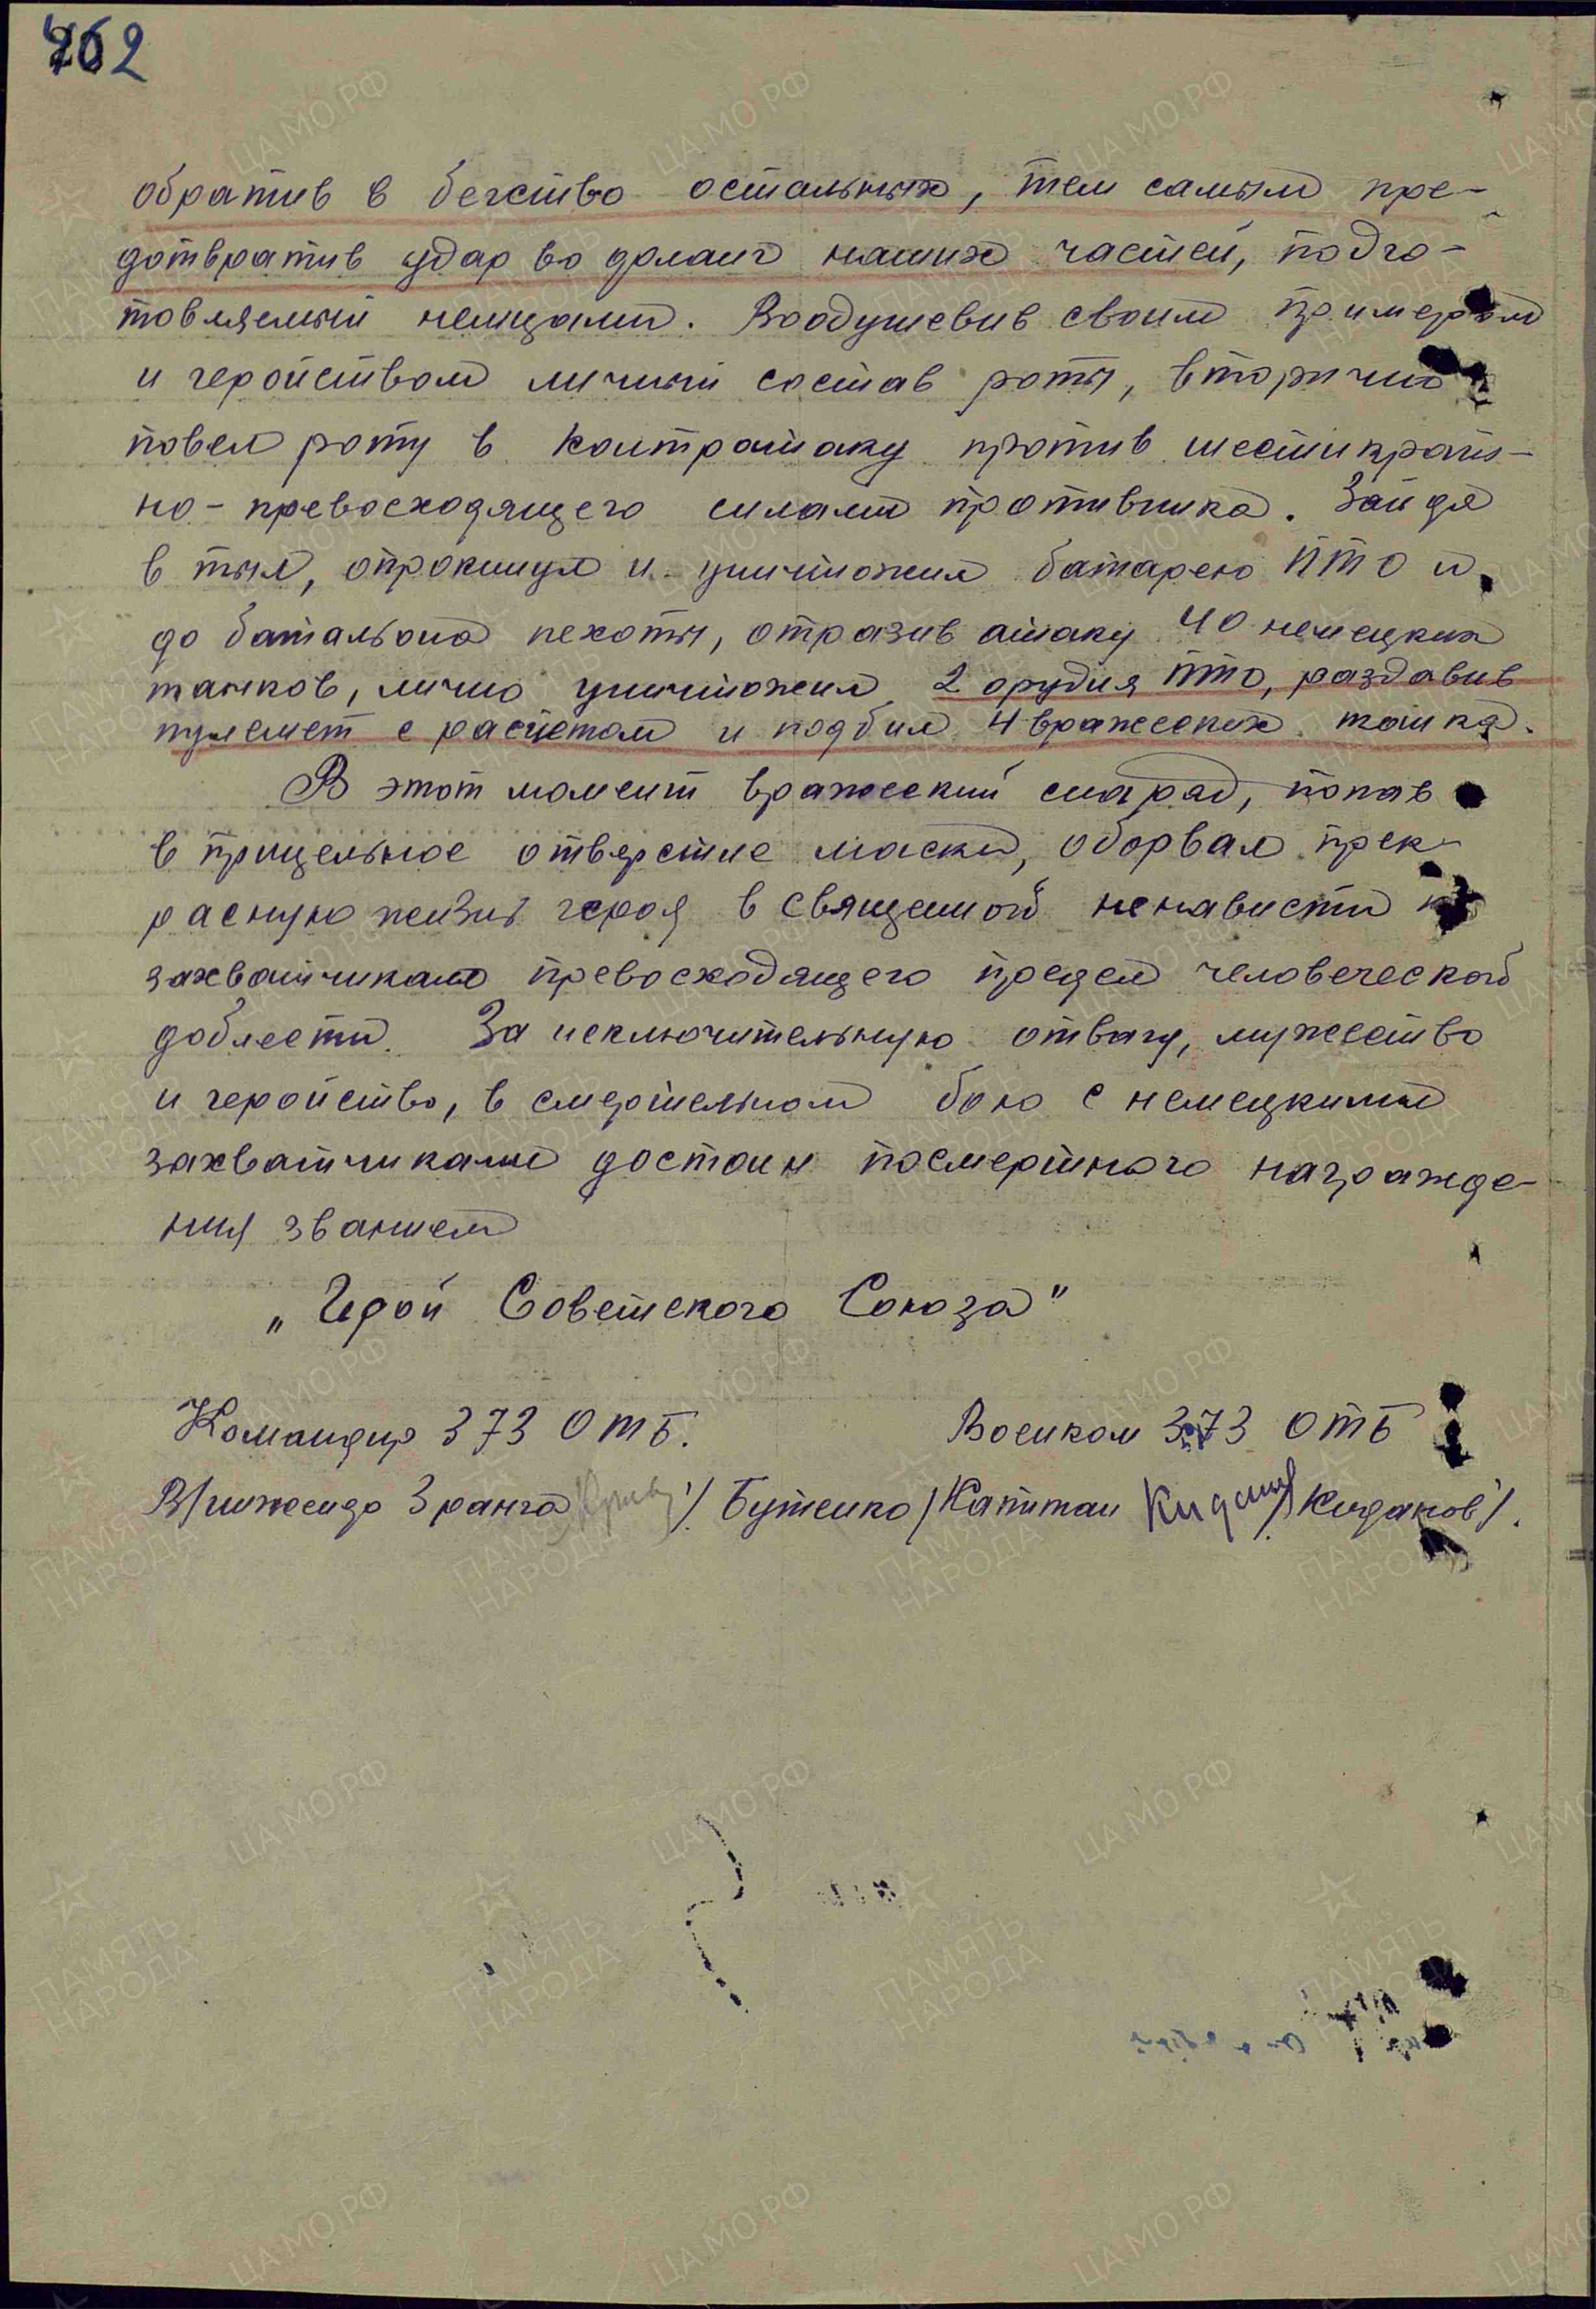 762
обратив в бегство остальных, тем самым пре-
дотвратив удар во фланг наших частей, подго-
товляемый немцами. Воодушевив своим примером
и геройством личный состав роты, вторично
повел роту в контратаку против шестикрат-
но-превосходящего силами противника. Зайдя
в тыл, опрокинул и уничтожил батарею ПТО и
до батальона пехоты, отразив атаку 40 немецких
танков, лично уничтожил 2 орудия ПТО, раздавив
пулемет с расчетом и подбил 4 вражеских танка.
В этот момент вражеский снаряд, попав
в прицельное отверстие маски, оборвал прек-
расную жизнь героя в священной ненависти к
захватчикам превосходящего предел человеческой
доблести. За исключительную отвагу, мужество
и геройство, в смертельном бою с немецкими
захватчиками достоин посмертного награжде-
ния званием
„Герой Советского Союза"
Командир 373 ОТБ. Военком 373 ОТБ
В/инженер 3 ранга / Бутенко / Капитан /Киданов/.
ЦА МО РФ
ПАМЯТЬ НАРОДА